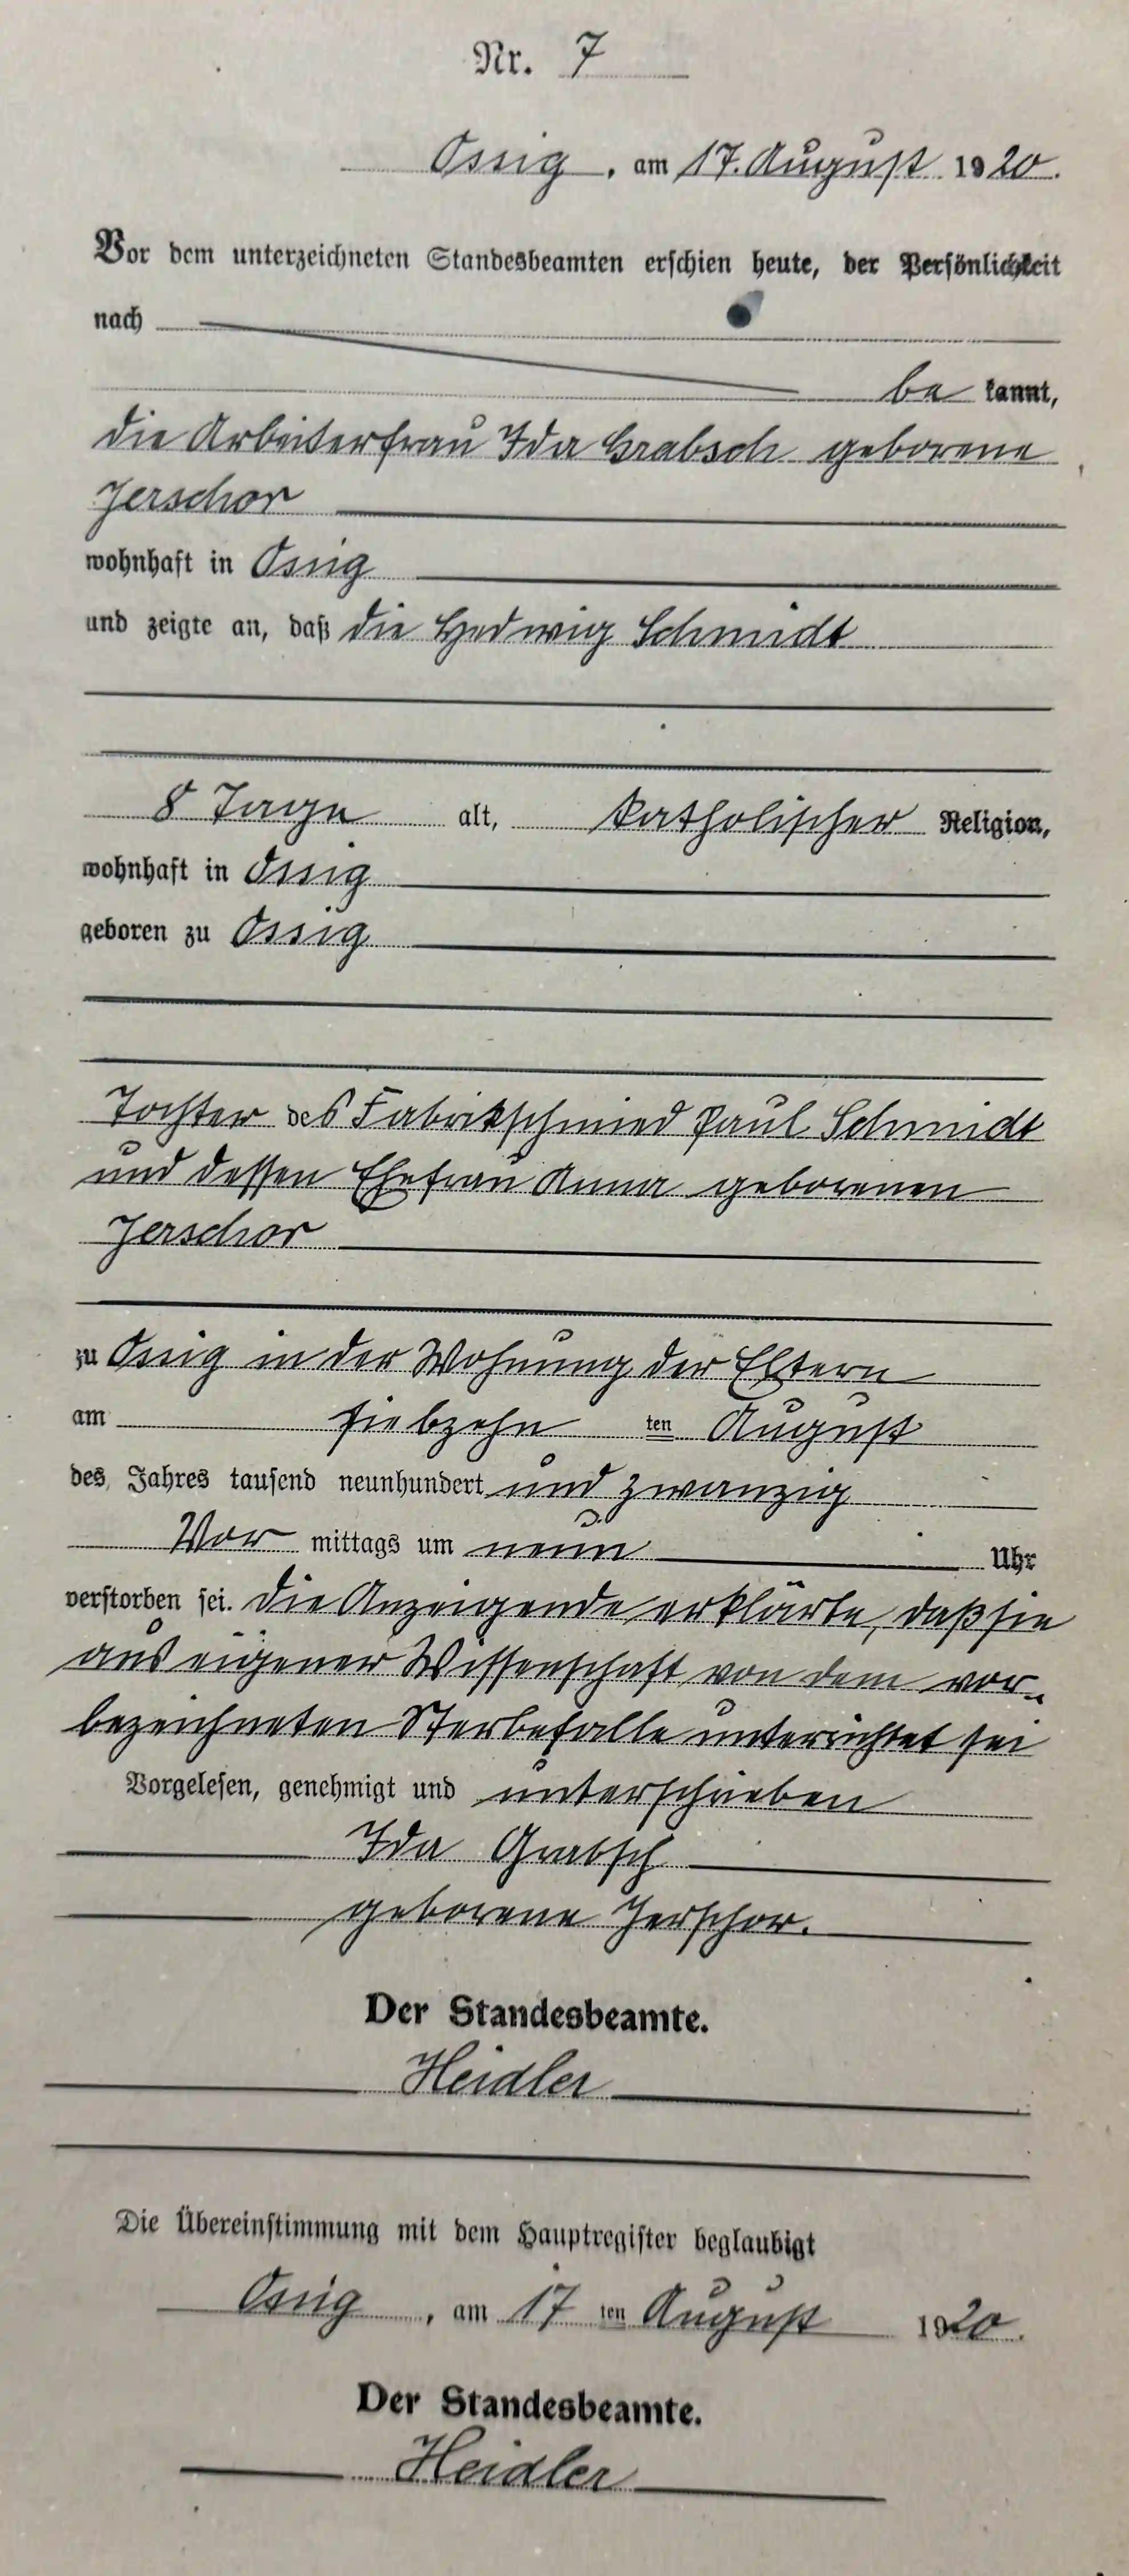 Nr. 7
Ossig, am 17. August 1920.
Vor dem unterzeichneten Standesbeamten erschien heute, der Persönlichkeit
nach
be kannt,
die Arbeiterfrau Ida Grabsch geborene
Jerschor
wohnhaft in Ossig
und zeigte an, daß die Hedwig Schmidt
8 Tage alt, katholischer Religion,
wohnhaft in Ossig
geboren zu Ossig
Tochter des Fabrikschmied Paul Schmidt
und dessen Ehefrau Anna geborenen
Jerschor
zu Ossig in der Wohnung der Eltern
am siebzehn ten August
des Jahres tausend neunhundert und zwanzig
Vor mittags um neun Uhr
verstorben sei. Die Anzeigende erklärte, daß sie
aus eigener Wissenschaft von dem vor-
bezeichneten Sterbefalle unterrichtet sei
Vorgelesen, genehmigt und unterschrieben
Ida Grabsch
geborene Jerschor.
Der Standesbeamte.
Heidler
Die Übereinstimmung mit dem Hauptregister beglaubigt
Ossig, am 17 ten August 1920.
Der Standesbeamte.
Heidler